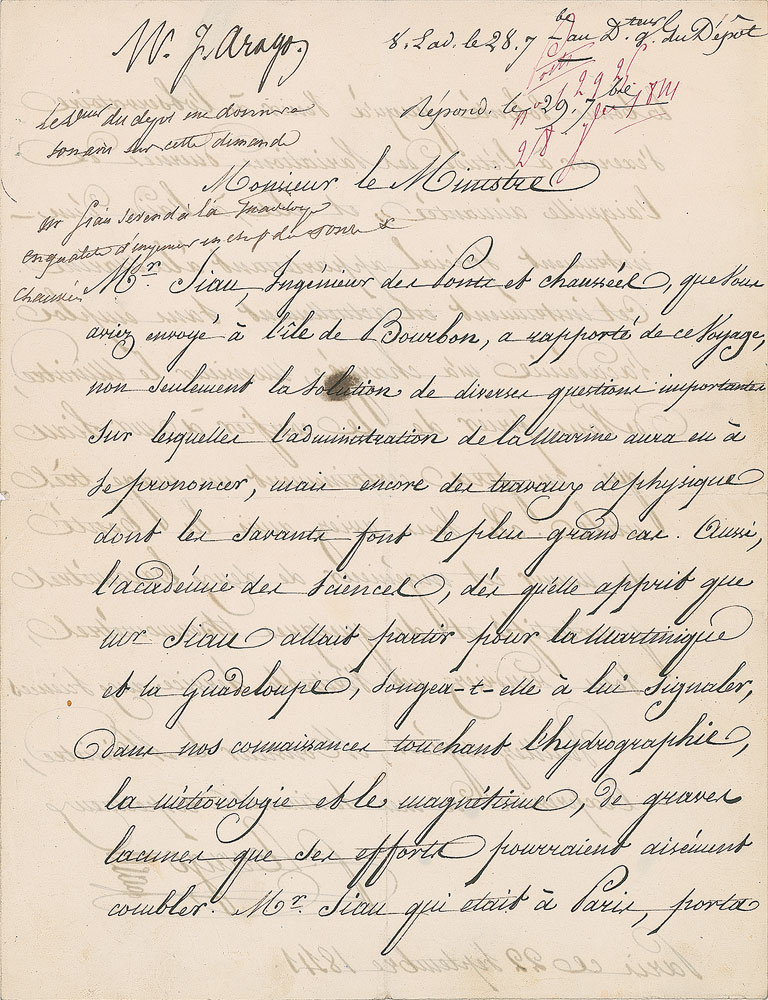 M. F. Arago
8. Lad. le 28. 7bre au Dteur g. du Dépôt
Répond. le 29. 7bre
le dteur du dépôt me donnera
son avis sur cette demande
Monsieur le Ministre
mr Siau se rend à la
en qualité d'ingénieur en chef des ponts &
chaussées
Mr. Siau, Ingénieur des Ponts et chaussées, que vous
aviez envoyé à l'île de Bourbon, a rapporté de ce voyage,
non seulement la solution de diverses questions importantes
sur lesquelles l'administration de la Marine aura eu à
se prononcer, mais encore des travaux de physique
dont les savants font le plus grand cas. Aussi,
l'académie des sciences, dès qu'elle apprit que
mr Siau allait partir pour la Martinique
et la Guadeloupe, songea-t-elle à lui signaler,
dans nos connaissances touchant l'hydrographie,
la météorologie et le magnétisme, de graves
lacunes que ses efforts pourraient aisément
combler. Mr. Siau qui etait à Paris, porta